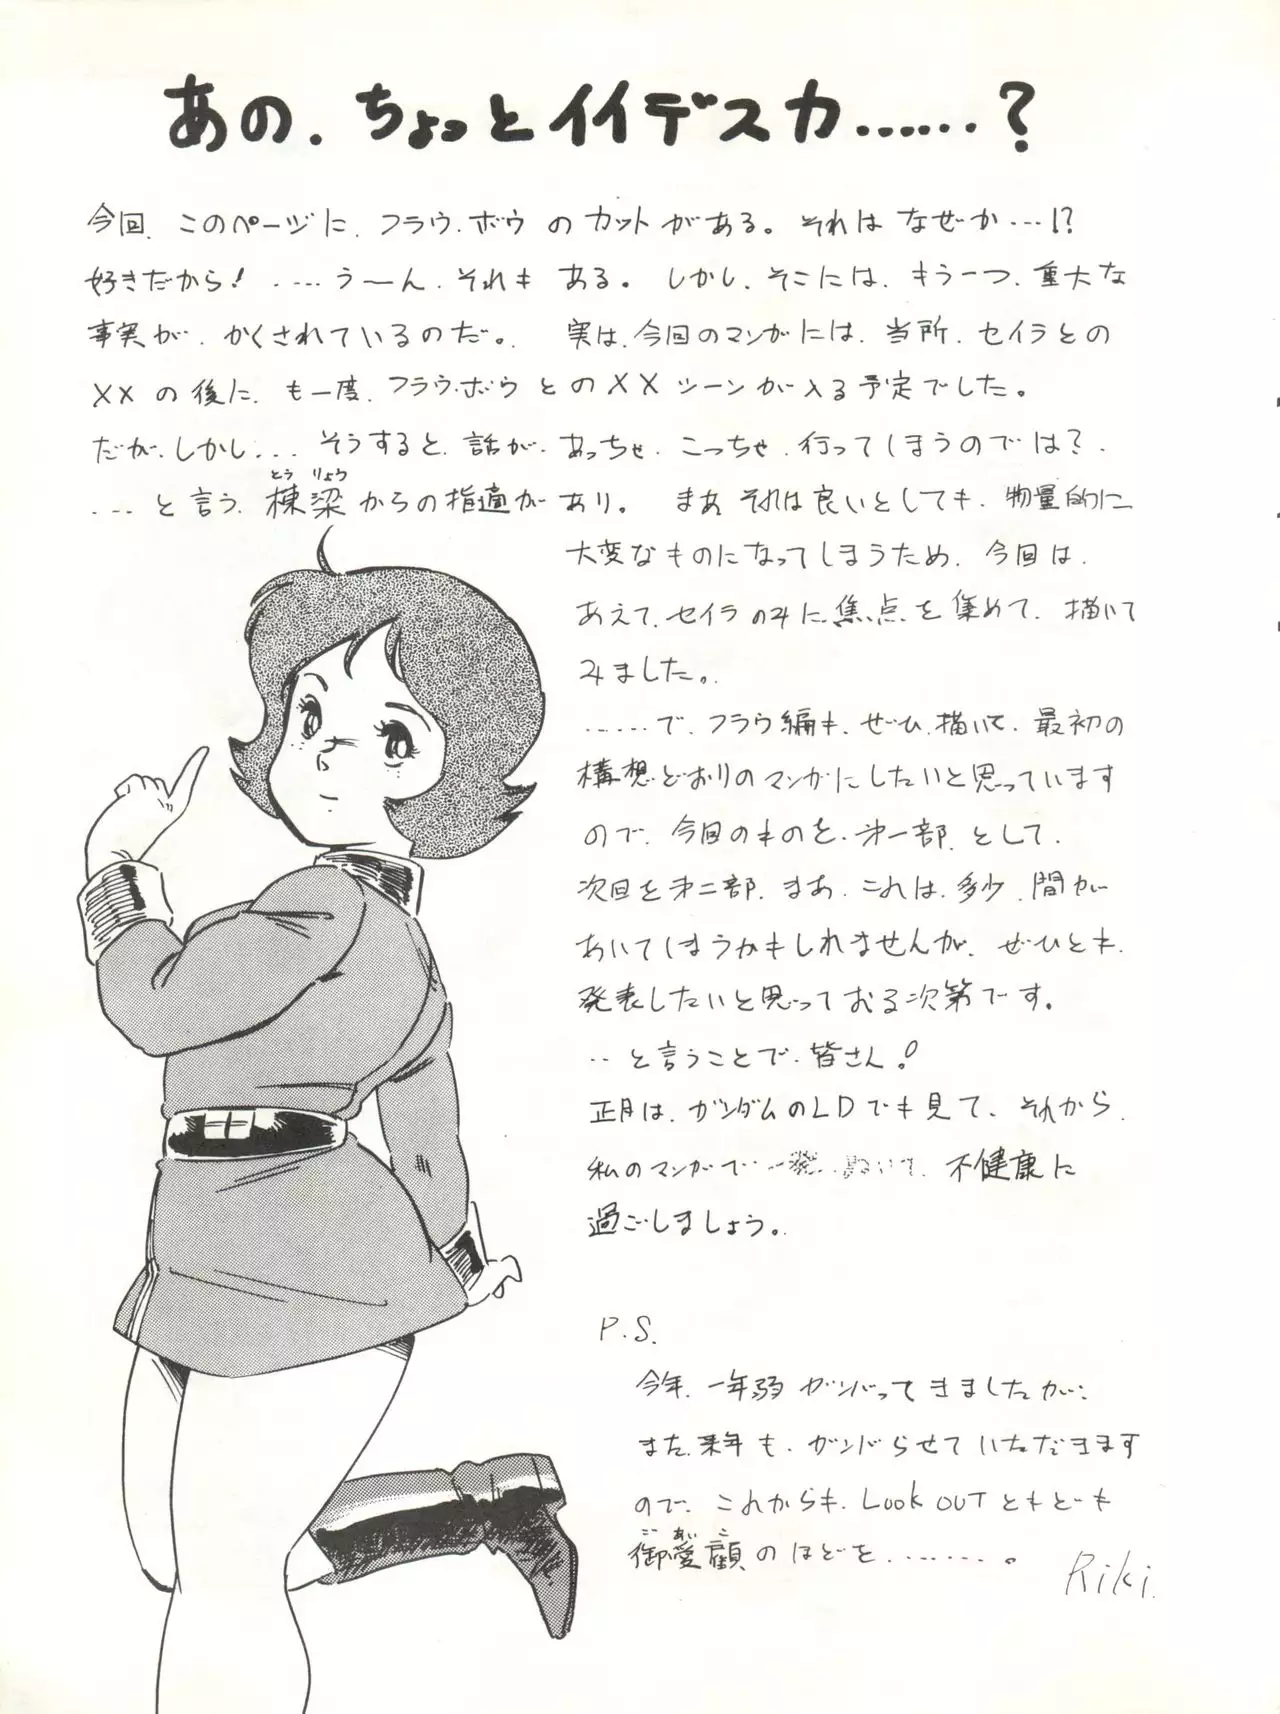 あの、ちょっとイイデスカ……？
今回、このページに、フラウ・ボウのカットがある。それはなぜか…!?
好きだから! ……う〜ん、それもある。しかし、そこには、もう一つ、重大な
事実が、かくされているのだ。 実は、今回のマンガには、当所、セイラとの
××の後に、も一度、フラウ・ボウとの××シーンが入る予定でした。
だが、しかし… そうすると、話が、あっちゃ、こっちゃ、行ってしまうのでは？
…と言う、棟梁からの指適があり。 まあ、それは良いとしても、物量的に
とう りょう
大変なものになってしまうため、今回は、
あえて、セイラのみに、焦点を集めて、描いて
みました。
……で、フラウ編も、ぜひ、描いて、最初の
構想どおりのマンガにしたいと思っています
ので、今回のものを、第一部、として、
次回を第二部、まあ、これは、多少、間が
あいてしまうかもしれませんが、ぜひとも、
発表したいと思っておる次第です。
‥と言うことで、皆さん!
正月は、ガンダムのLDでも見て、それから、
私のマンガで、一発、ぬいて、不健康に
過ごしましょう。
P.S.
今年、一年弱ガンバってきましたが、
また、来年も、ガンバらせていただきます
ので、これからも、LOOK OUTともども
ご あい こ
御愛顧のほどを………。
Riki.